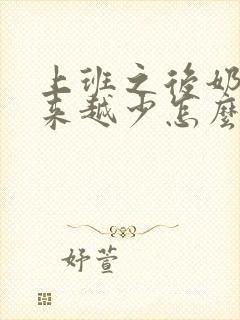 上班之后奶
来越少怎麽
妤萱